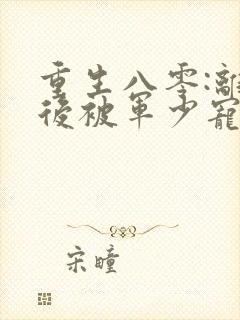 重生八零:離
後被軍少寵
宋瞳